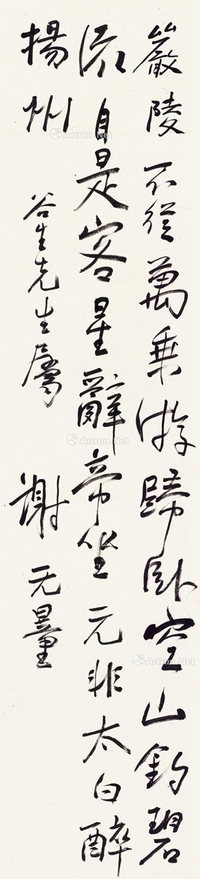 嚴陵不從萬乘游歸臥空山釣碧
流自是客星辭帝坐元非太白醉
揚州
谷生先生屬 謝无量